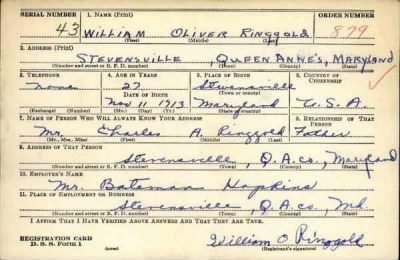 SERIAL NUMBER 1. NAME (Print) ORDER NUMBER
43 WILLIAM OLIVER RINGGOLD 879
(First) (Middle) (Last)
2. ADDRESS (Print)
STEVENSVILLE, QUEEN ANNE'S, MARYLAND
(Number and street or R. F. D. number) (Town) (County) (State)
3. TELEPHONE 4. AGE IN YEARS 5. PLACE OF BIRTH 6. COUNTRY OF CITIZENSHIP
none 27 Stevensville
DATE OF BIRTH (Town or county)
Nov 11 1913 Maryland U.S.A.
(Exchange) (Number) (Mo.) (Day) (Yr.) (State or country)
7. NAME OF PERSON WHO WILL ALWAYS KNOW YOUR ADDRESS 8. RELATIONSHIP OF THAT PERSON
Mr. Charles A. Ringgold Father
(Mr., Mrs., Miss) (First) (Middle) (Last)
9. ADDRESS OF THAT PERSON
Stevensville, Q.A.co., Maryland
(Number and street or R. F. D. number) (Town) (County) (State)
10. EMPLOYER'S NAME
Mr. Bateman Hopkins
11. PLACE OF EMPLOYMENT OR BUSINESS
Stevensville, Q.A.co., Md.
(Number and street or R. F. D. number) (Town) (County) (State)
I AFFIRM THAT I HAVE VERIFIED ABOVE ANSWERS AND THAT THEY ARE TRUE.
REGISTRATION CARD
D. S. S. FORM 1 (over) William O. Ringgold
(Registrant's signature)